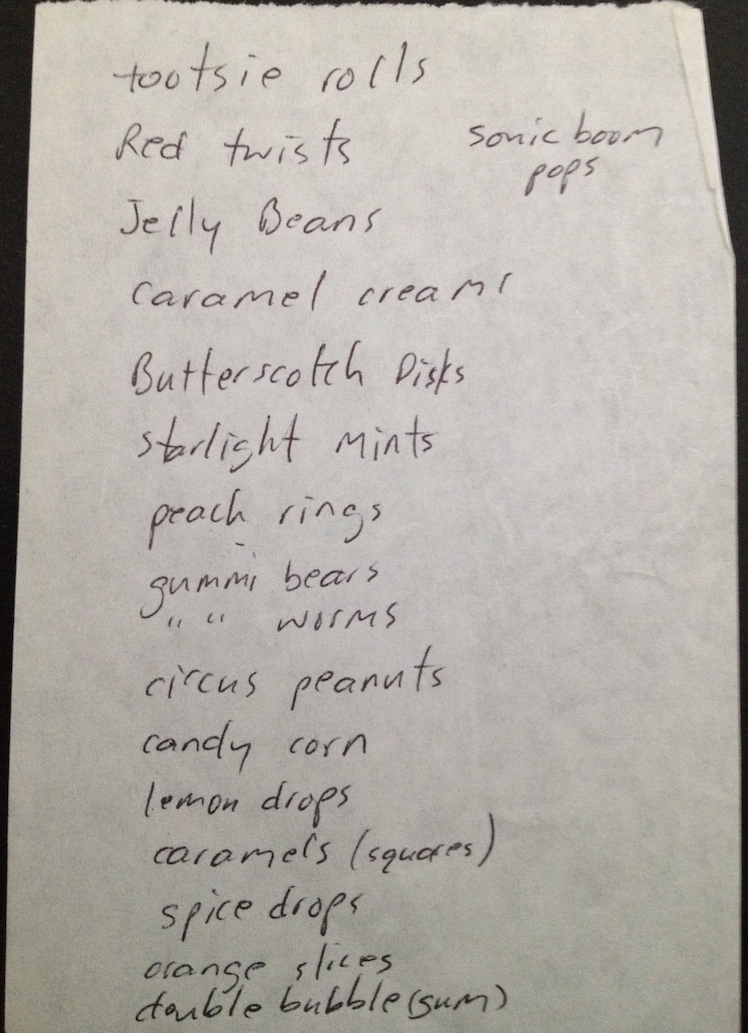 tootsie rolls
Red twists
sonic boom
pops
Jelly Beans
caramel creams
Butterscotch Disks
starlight mints
peach rings
gummi bears
" " worms
circus peanuts
candy corn
lemon drops
caramels (squares)
spice drops
orange slices
double bubble (gum)